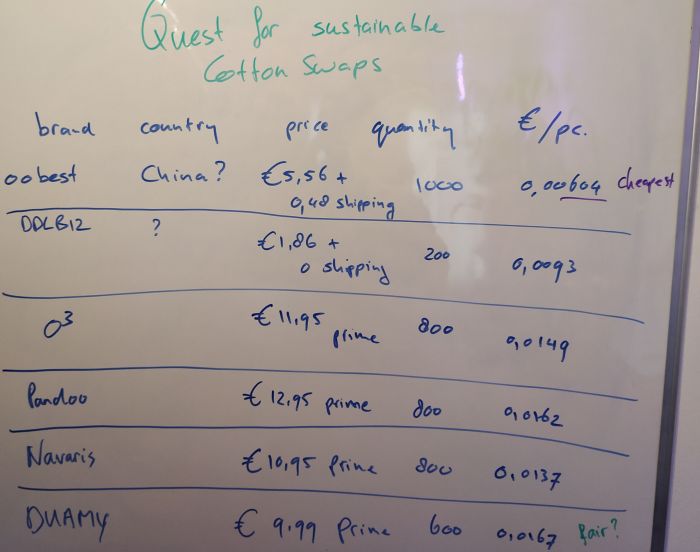 Quest for sustainable
Cotton Swaps
brand country price quantity €/pc.
oobest China? €5,56 + 1000 0,00604 cheapest
0,48 shipping
DDLB12 ? €1,86 + 200 0,0093
0 shipping
O³ €11,95 prime 800 0,0149
Pandoo €12,95 prime 800 0,0162
Navaris €10,95 prime 800 0,0137
DUAMY € 9.99 Prime 600 0,0167 fair?